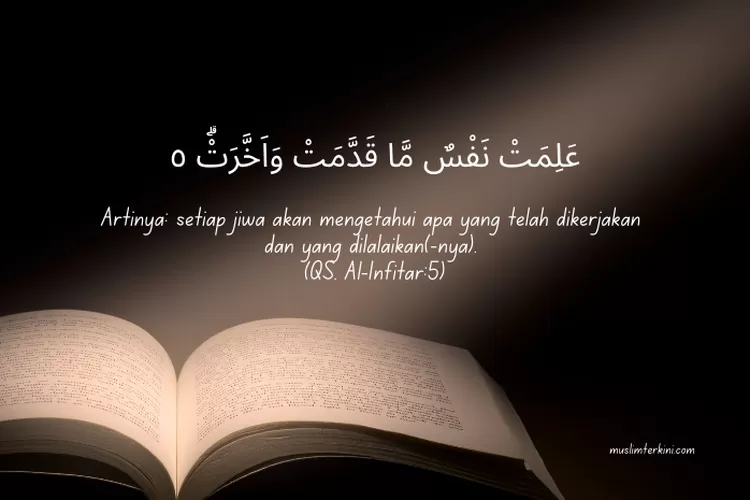 عَلِمَتْ نَفْسٌ مَّا قَدَّمَتْ وَاَخَّرَتْۗ ٥
Artinya: setiap jiwa akan mengetahui apa yang telah dikerjakan
dan yang dilalaikan(-nya).
(QS. Al-Infitar:5)
muslimterkini.com